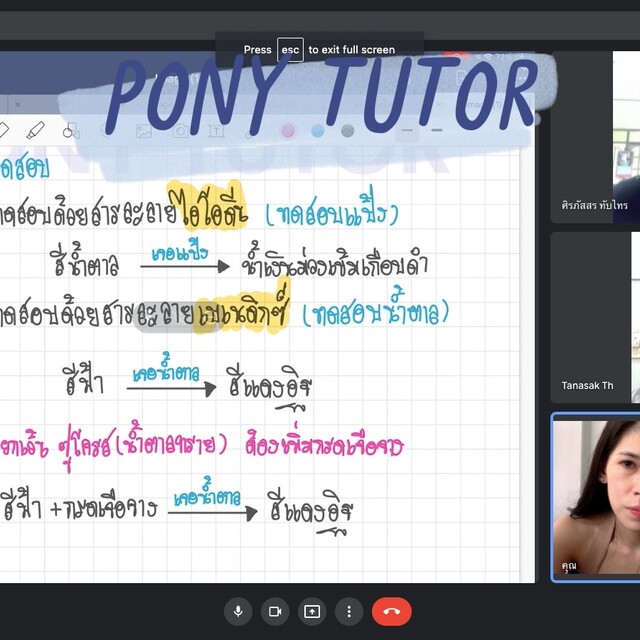 Press esc to exit full screen
PONY TUTOR
ดสอบ
ทดสอบด้วยสารละลายไอโอดีน (ทดสอบแป้ง)
สีน้ำตาล เจอแป้ง น้ำเงินม่วงเข้มเกือบดำ
ทดสอบด้วยสารละลายเบเนดิกซ์ (ทดสอบน้ำตาล)
สีฟ้า เจอน้ำตาล สีแดงอิฐ
ยกเว้น ซูโครส (น้ำตาลทราย) ต้องเพิ่มกรดเจือจาง
สีฟ้า + กรดเจือจาง เจอน้ำตาล สีแดงอิฐ
ศิรภัสสร ทับไทร
Tanasak Th
คุณ